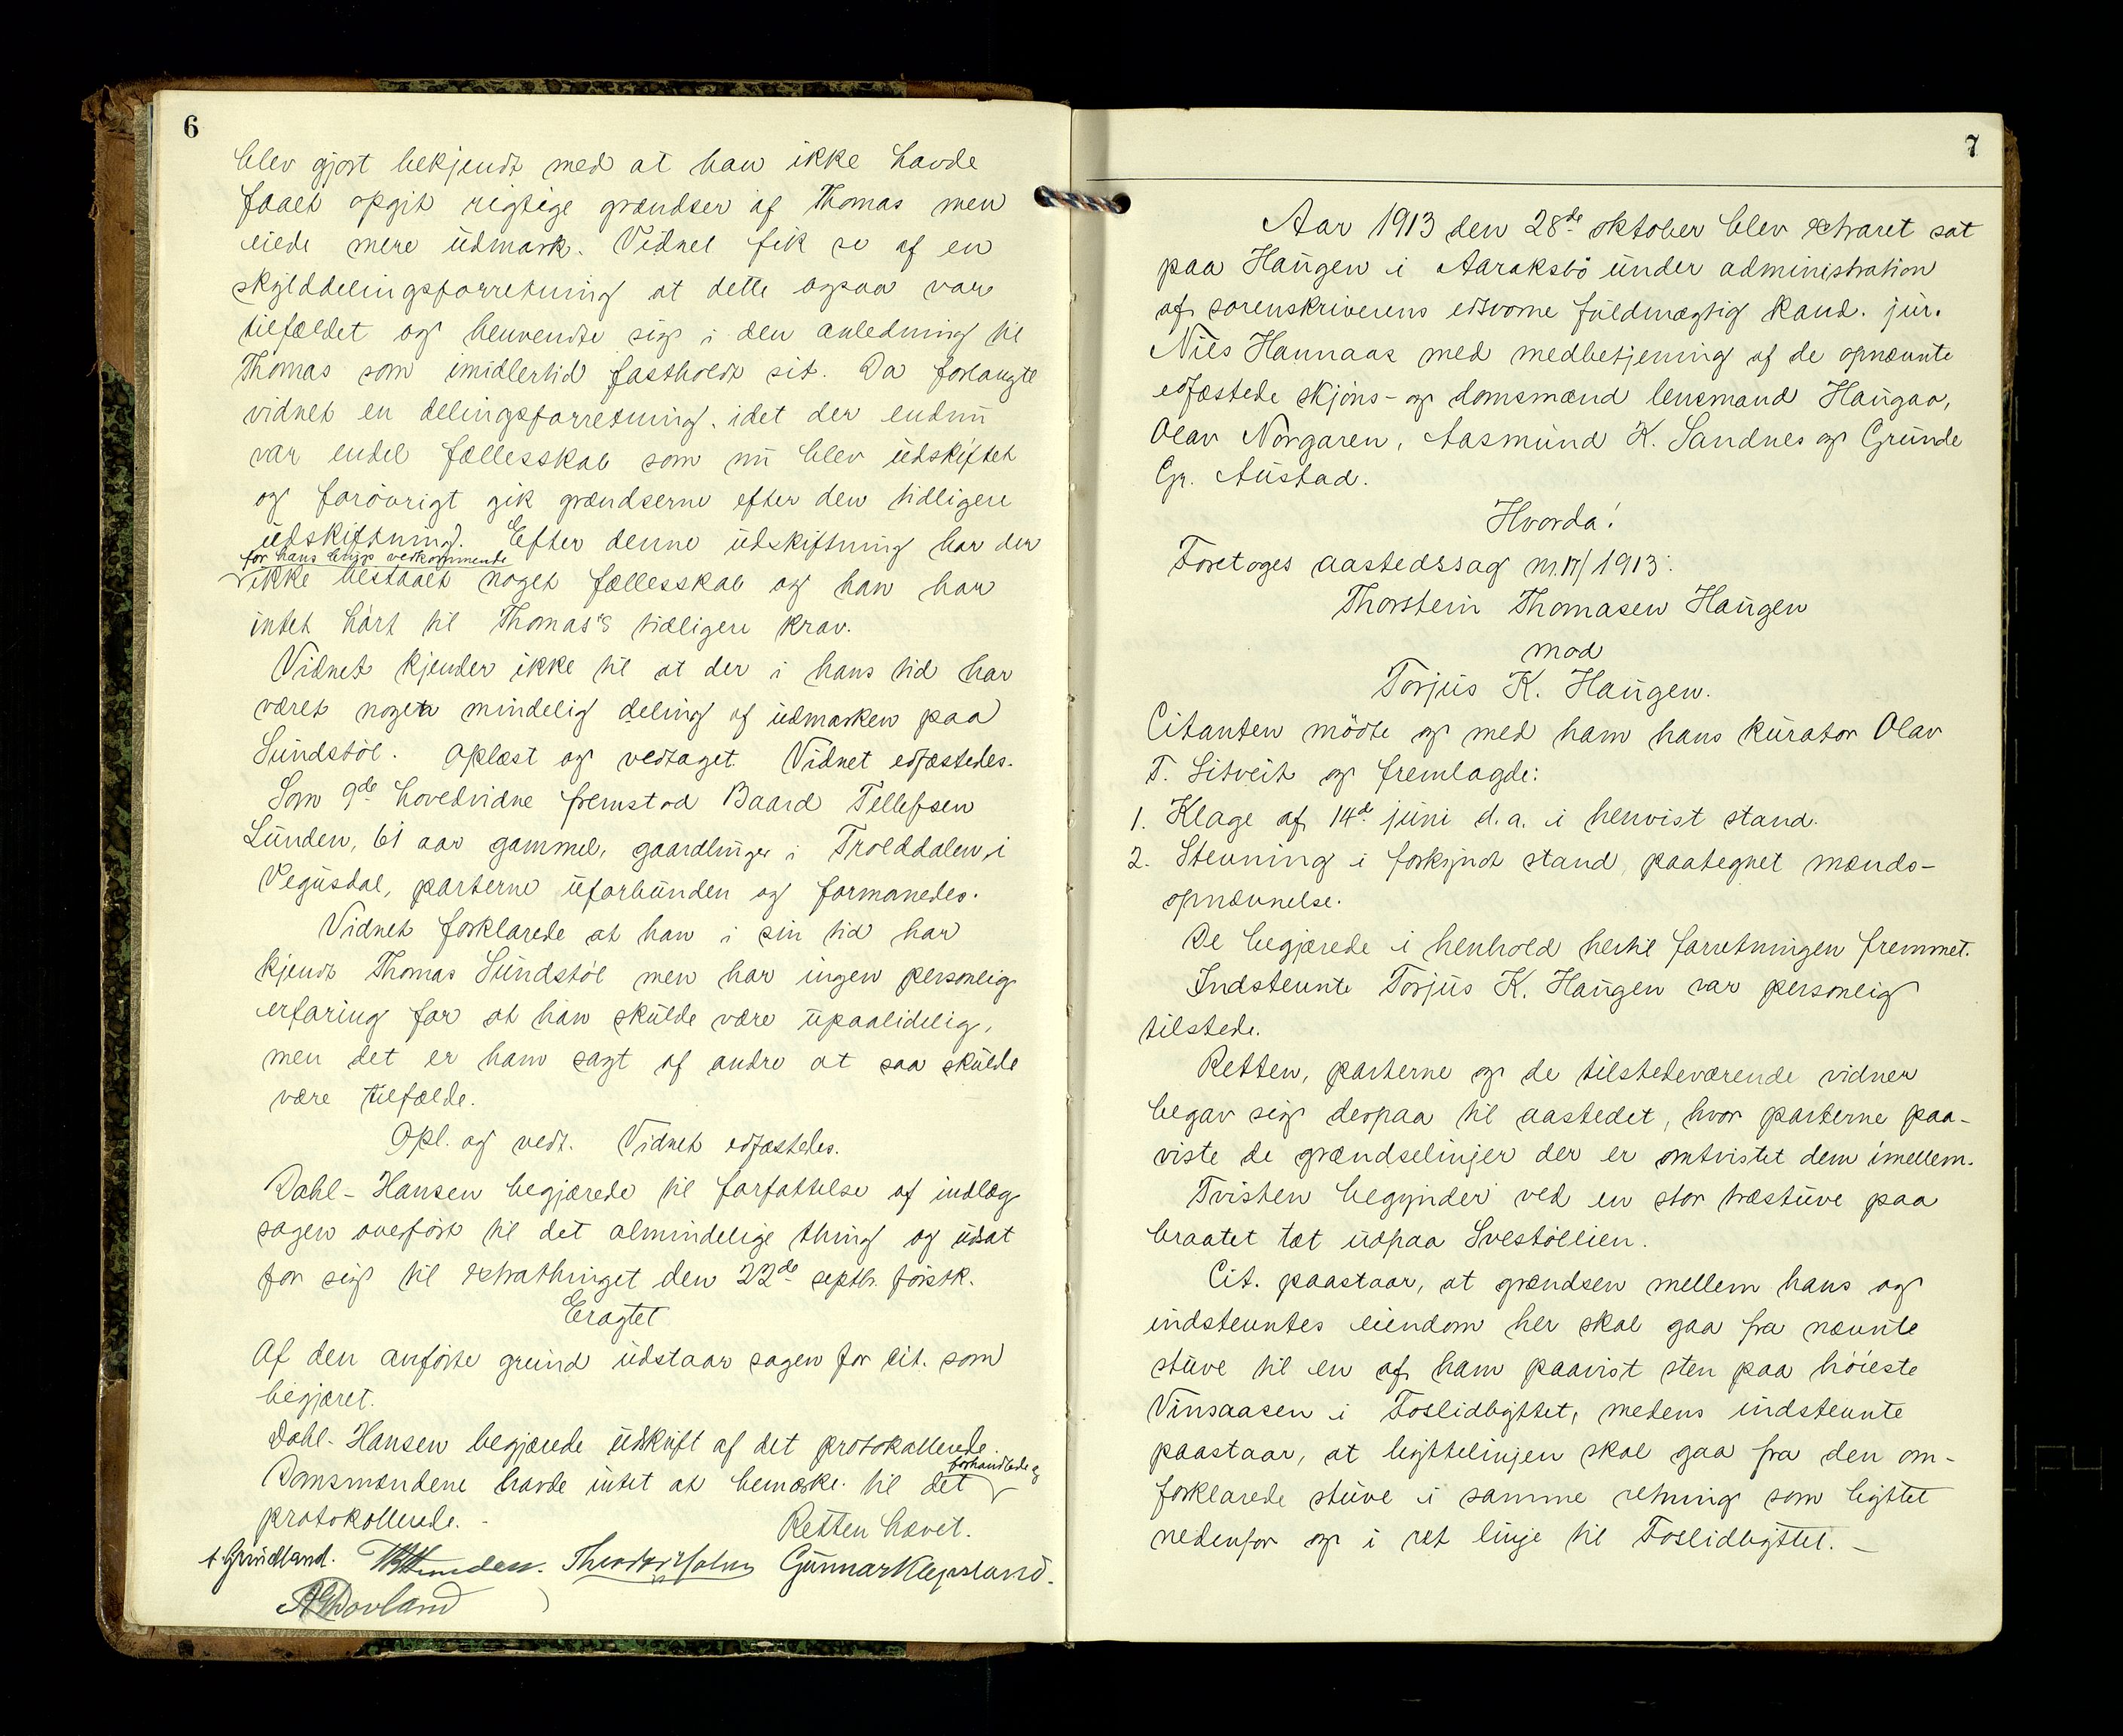 6
blev gjort bekjendt med at han ikke havde
faaet opgit rigtige grændser af Thomas men
eiede mere udmark. Vidnet fik se af en
skylddelingsforretning at dette ogsaa var
tilfældet og henvendte sig i den anledning til
Thomas som imidlertid fastholdt sit. Da forlangte
vidnet en delingsforretning, idet der endnu
var endel fællesskab som nu blev udskiftet
og forövrigt gik grændserne efter den tidligere
udskiftning. Efter denne udskiftning har der
for hans brugs vedkommende
ikke bestaaet noget fællesskab og han har
intet hört til Thomas's tidligere krav.
Vidnet kjender ikke til at der i hans tid har
været nogen mindelig deling af udmarken paa
Sundstöl. Oplæst og vedtaget. Vidnet edfæstedes.
Som 9de hovedvidne fremstod Baard Tellefsen
Lunden, 61 aar gammel, gaardbruger i Trolddalen i
Vegusdal, parterne uforbunden og formanedes.
Vidnet forklarede at han i sin tid har
kjendt Thomas Sundstöl men har ingen personlig
erfaring for at han skulde være upaalidelig,
men det er ham sagt af andre at saa skulde
være tilfælde.
Opl. og vedt. Vidnet edfæstedes.
Dahl-Hansen begjærede til forfattelse af indlæg
sagen overfört til det almindelige thing og udsat
for sig til extrathinget den 22de septbr. förstk.
Eragtet
Af den anförte grund udstaar sagen for cit. som
begjæret.
Dahl-Hansen begjærede udskrift af det protokollerede.
forhandlede og
Domsmændene havde intet at bemærke til det
protokollerede. - Retten hævet.
A. Grundland. Theodor Holm Gunnar Klepsland.
A G Dovland
7
Aar 1913 den 28de oktober blev extraret sat
paa Haugen i Aaraksbö under administration
af sorenskriverens edsvorne fuldmægtig kand. jur.
Nils Hannaas med medbetjening af de opnævnte
edfæstede skjöns- og domsmænd lensmand Haugaa,
Olav Norgaren, Aasmund K. Sandnes og Grunde
Gr. Austad.
Hvorda!
Foretoges aastedssag nr. 17/1913:
Thorstein Thomasen Haugen
mod
Torjus K. Haugen.
Citanten mödte og med ham hans kurator Olav
T. Litveit og fremlagde:
1. Klage af 14de juni d.a. i henvist stand.
2. Stevning i forkyndt stand, paategnet mænds-
opnævnelse.
De begjærede i henhold hertil forretningen fremmet.
Indstevnte Torjus K. Haugen var personlig
tilstede.
Retten, parterne og de tilstedeværende vidner
begav sig derpaa til aastedet, hvor parterne paa-
viste de grændselinjer der er omtvistet dem imellem.
Tvisten begynder ved en stor træstuve paa
braatet tæt udpaa Svestöllien.
Cit. paastaar, at grændsen mellem hans og
indstevntes eiendom her skal gaa fra nævnte
stuve til en af ham paavist sten paa höieste
Vinsaasen i Foslidbyttet, medens indstevnte
paastaar, at byttelinjen skal gaa fra den om-
forklarede stuve i samme retning som byttet
nedenfor og i ret linje til Foslidbyttet. -